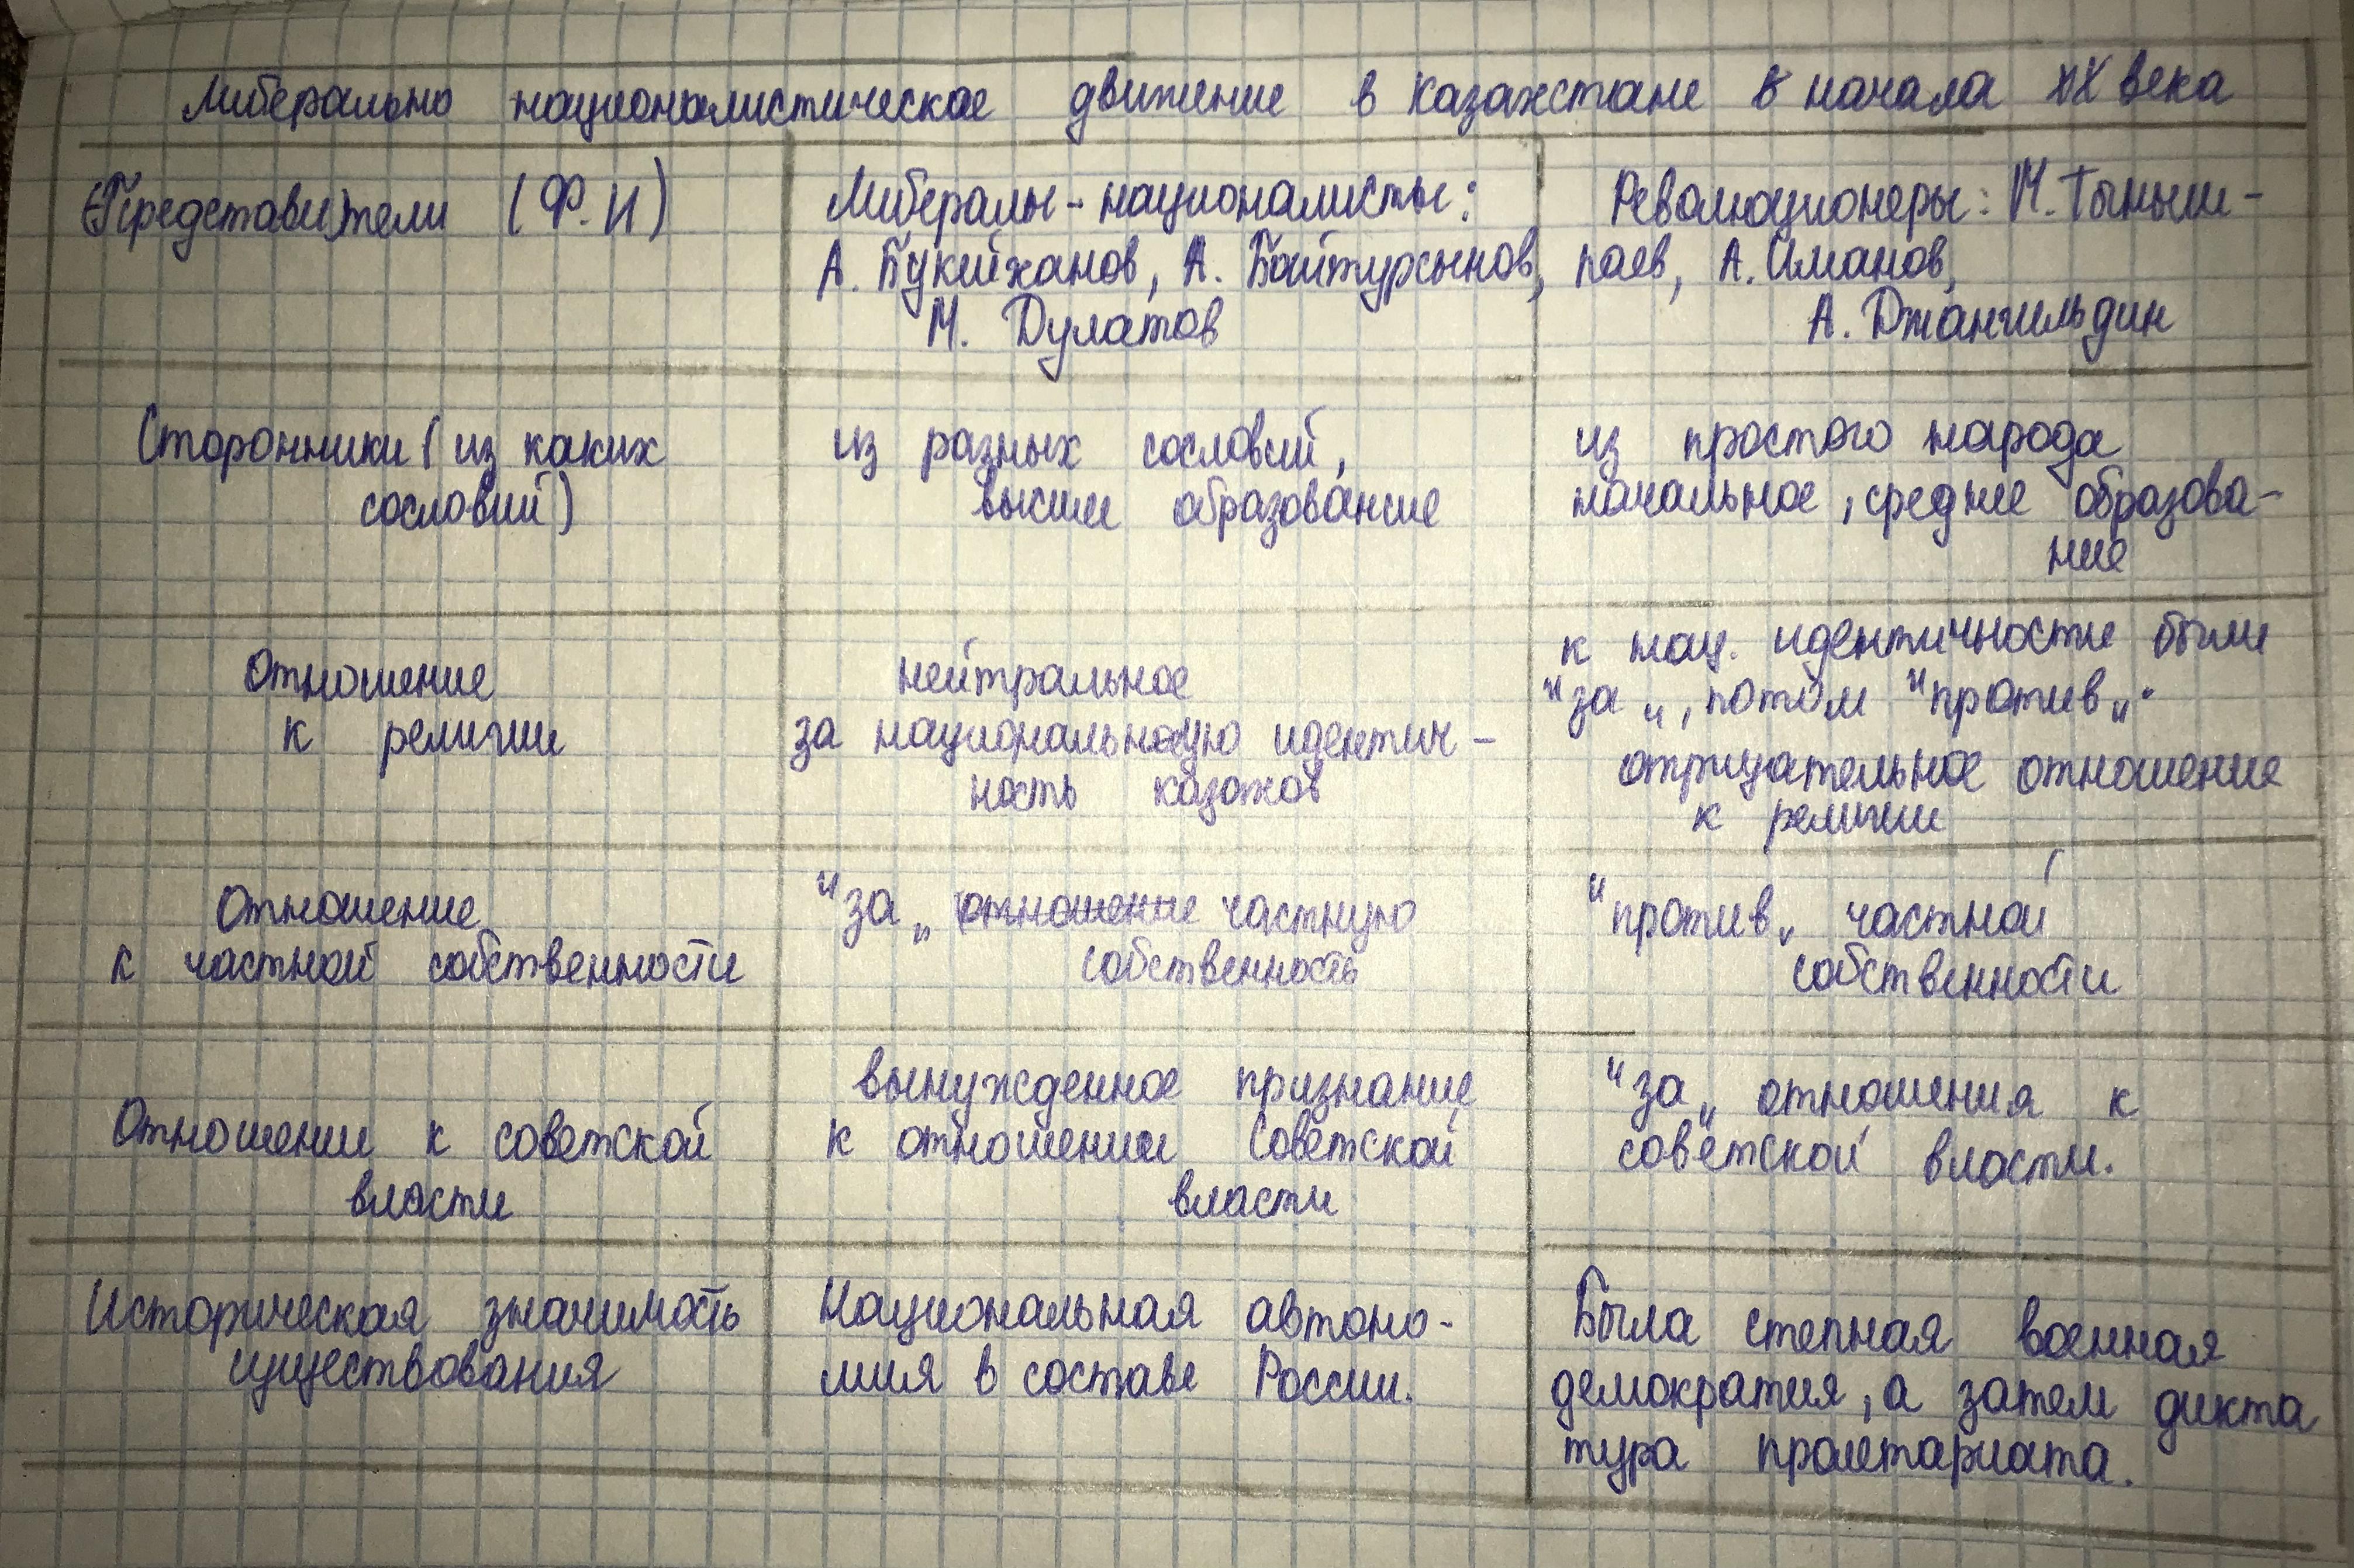 Либерально националистическое движение в Казахстане в начала XX века
Представители (Ф.И)
Либералы-националисты:
А. Букейханов, А. Байтурсынов,
М. Дулатов
Революционеры: М. Тыныш-
паев, А. Иманов,
А. Джангильдин
Сторонники (из каких
сословий)
из разных сословий,
высшее образование
из простого народа
начальное, средние образова-
ние
Отношение
к религии
нейтральное
за национальную идентич-
ность казахов
к нац. идентичности были
"за„, потом "против„.
отрицательное отношение
к религии
Отношение
к частной собственности
"за„ отношение частную
собственность
"против„ частной
собственности
Отношении к советской
власти
вынужденное признание
к отношении Советской
власти
"за„ отношения к
советской власти.
Историческая значимость
существования
Национальная автоно-
мия в составе России.
Была степная военная
демократия, а затем дикта
тура пролетариата.